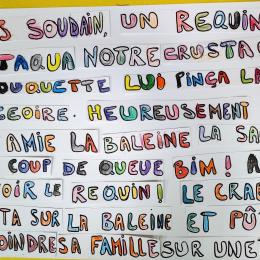 S SOUDAIN, UN REQUIN
TAQUA NOTRE CRUSTA
OUQUETTE LUI PINÇA LA
GEOIRE. HEUREUSEMENT
AMIE LA BALEINE LA SA
COUP DE QUEUE BIM! A
OIR LE REQUIN! LE CRAB
TA SUR LA BALEINE ET PÛT
OINDRE SA FAMILLE SUR UNE